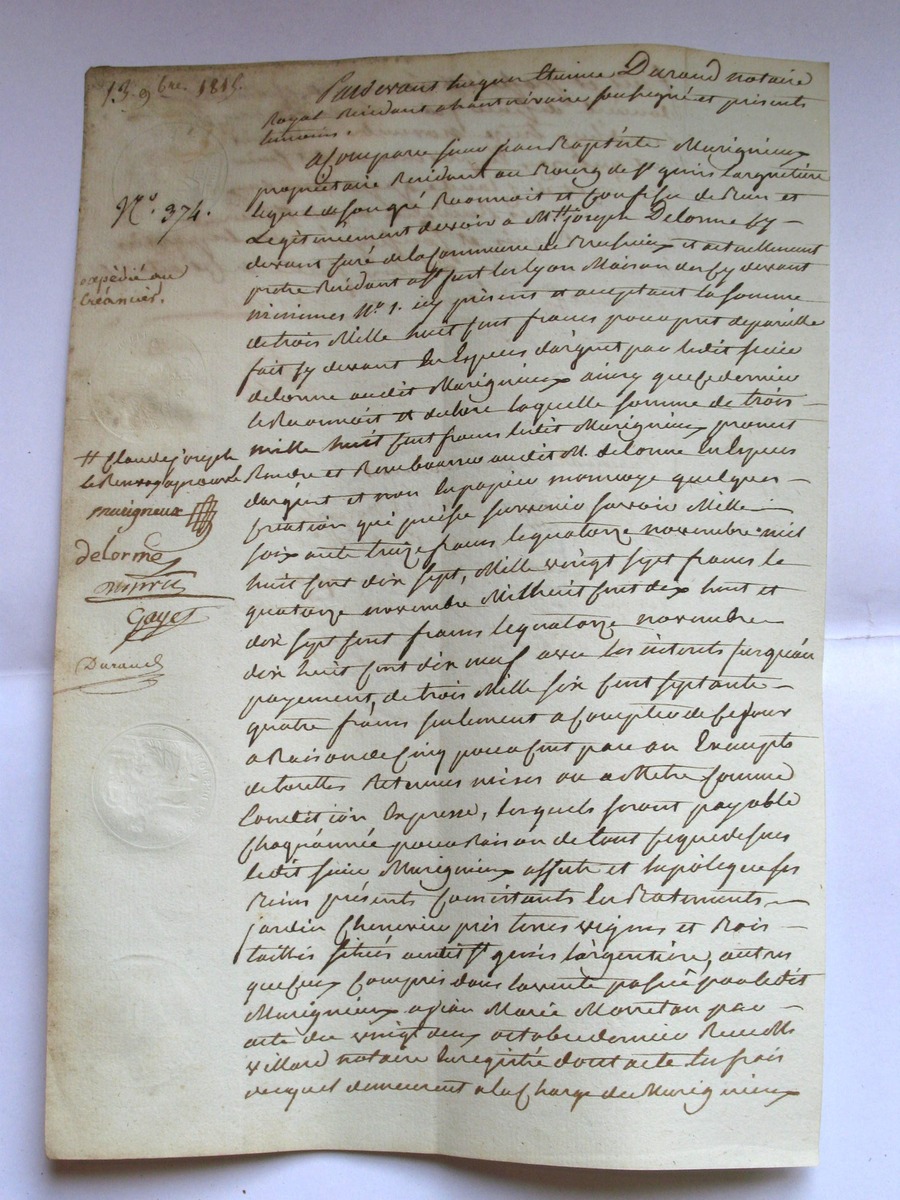 13 9bre 1815.
Pardevant Durand notaire
Royal Résidant soussigné et présents
témoins.
N°. 374.
a Comparu sieur jean Baptiste Marigneux
propriétaire Résidant au Bourg de St genis Largentière
lequel de son gré Reconnoit et Confesse de Bien et
Legitimement devoir à Mtre joseph Delorme Cy
devant Curé de la Commune de et actuellement
prêtre Résidant a st just les lyon Maison des Cy devant
minimes N° 1. icy présent et acceptant la somme
de trois Mille huit Cent francs pour pret de pareille
fait Cy devant En Espèces dargent par ledit sieur
delorme audit Marigneux ainsy que ce dernier
le Reconnoit et declare laquelle somme de trois
mille huit Cent francs ledit Marigneux promet
Rendre et Rembourser audit M. delorme En Espèces
dargent et non En papier monnoye quelques
Création qui puisse survenir savoir Mille
soixante treize francs le quatorze novembre mil
huit Cent dix sept, Mille vingt sept francs le
quatorze novembre Mil huit Cent dix huit et
dix sept Cent francs le quatorze novembre
dix huit Cent dix neuf avec les intérêts jusqu'au
payement, de trois Mille six Cent septante
quatre francs seulement a Compter de Ce jour
a Raison de Cinq pour Cent par an Exempts
de toutes Retenues mises ou a Mettre Comme
Condition Expresse, lesquels seront payable
Chaque année pour Raison de tout Ce que dessus
ledit sieur Marigneux affecte et hipoteque ses
Biens présents Consistants En Batiments
jardin Cheneviere près terres vignes et Bois
taillis situés audit St genis l'argentière, autres
que Ceux Compris dans la vente passée par ledit
Marigneux a jean Marie par
acte du vingt deux octobre dernier Recu Me
villard notaire Enregistré dont acte les frais
duquel demeurent a la Charge du Marigneux
expédié au
Créancier.
# Claude joseph
le Renvoy approuvé
Marigneux
delorme
Gayet
Durand